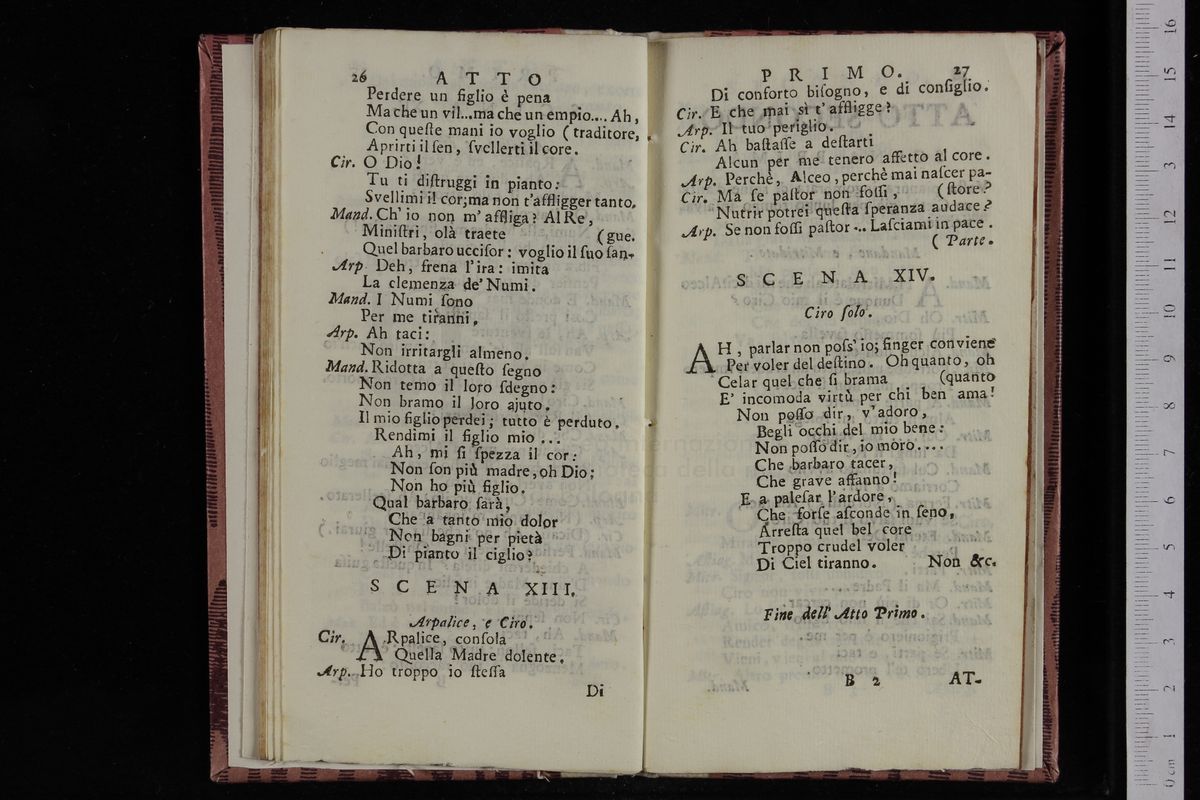 26 ATTO
Perdere un figlio è pena
Ma che un vil...ma che un empio.... Ah,
Con queſte mani io voglio ( traditore,
Aprirti il ſen, ſvellerti il core.
Cir. O Dio!
Tu ti diſtruggi in pianto:
Svellimi il cor;ma non t'affligger tanto.
Mand. Ch' io non m' affliga? Al Re,
Miniſtri, olà traete (gue.
Quel barbaro ucciſor: voglio il ſuo ſan-
Arp Deh, frena l'ira: imita
La clemenza de' Numi.
Mand. I Numi ſono
Per me tiranni.
Arp. Ah taci:
Non irritargli almeno.
Mand. Ridotta a queſto ſegno
Non temo il loro ſdegno:
Non bramo il loro ajuto.
Il mio figlio perdei; tutto è perduto.
Rendimi il figlio mio ...
Ah, mi ſi ſpezza il cor:
Non ſon più madre, oh Dio;
Non ho più figlio.
Qual barbaro ſarà,
Che a tanto mio dolor
Non bagni per pietà
Di pianto il ciglio?
SCENA XIII.
Arpalice, e Ciro.
Cir. ARpalice, conſola
Quella Madre dolente.
Arp. Ho troppo io ſteſſa
Di
PRIMO. 27
Di conforto biſogno, e di conſiglio.
Cir. E che mai sì t' affligge?
Arp. Il tuo periglio.
Cir. Ah baſtaſſe a deſtarti
Alcun per me tenero affetto al core.
Arp. Perchè, Alceo, perchè mai naſcer pa-
Cir. Ma ſe paſtor non foſſi, (ſtore?
Nutrir potrei queſta ſperanza audace?
Arp. Se non foſſi paſtor ... Laſciami in pace.
( Parte.
SCENA XIV.
Ciro ſolo.
AH, parlar non poſs' io; finger conviene
Per voler del deſtino. Oh quanto, oh
Celar quel che ſi brama (quanto
E' incomoda virtù per chi ben ama!
Non poſſo dir, v'adoro,
Begli occhi del mio bene:
Non poſſo dir, io moro....
Che barbaro tacer,
Che grave affanno!
E a paleſar l'ardore,
Che forſe aſconde in ſeno,
Arreſta quel bel core
Troppo crudel voler
Di Ciel tiranno. Non &c.
Fine dell' Atto Primo.
B 2 AT-
0 cm 1 2 3 4 5 6 7 8 9 10 11 12 13 14 15 16